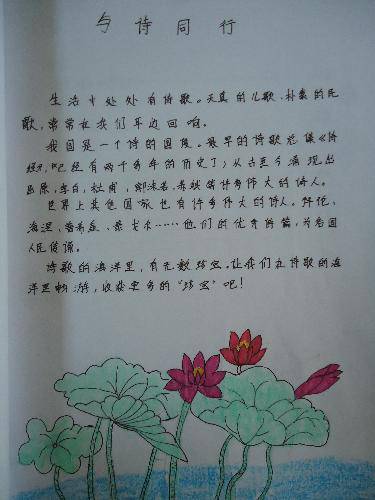 与诗同行
生活中处处有诗歌。天真的儿歌、朴素的民
歌,常常在我们耳边回响。
我国是一个诗的国度。最早的诗歌总集《诗
经》,已经有两千多年的历史了,从古至今涌现出
屈原、李白、杜甫、郭沫若、等许多伟大的诗人。
世界上其他国家也有许多伟大的诗人。拜伦、
海涅、普希金、泰戈尔……他们的优秀诗篇,为各国
人民传诵。
诗歌的海洋里,有无数珍宝。让我们在诗歌的海
洋里畅游,收获更多的“珍宝”吧!